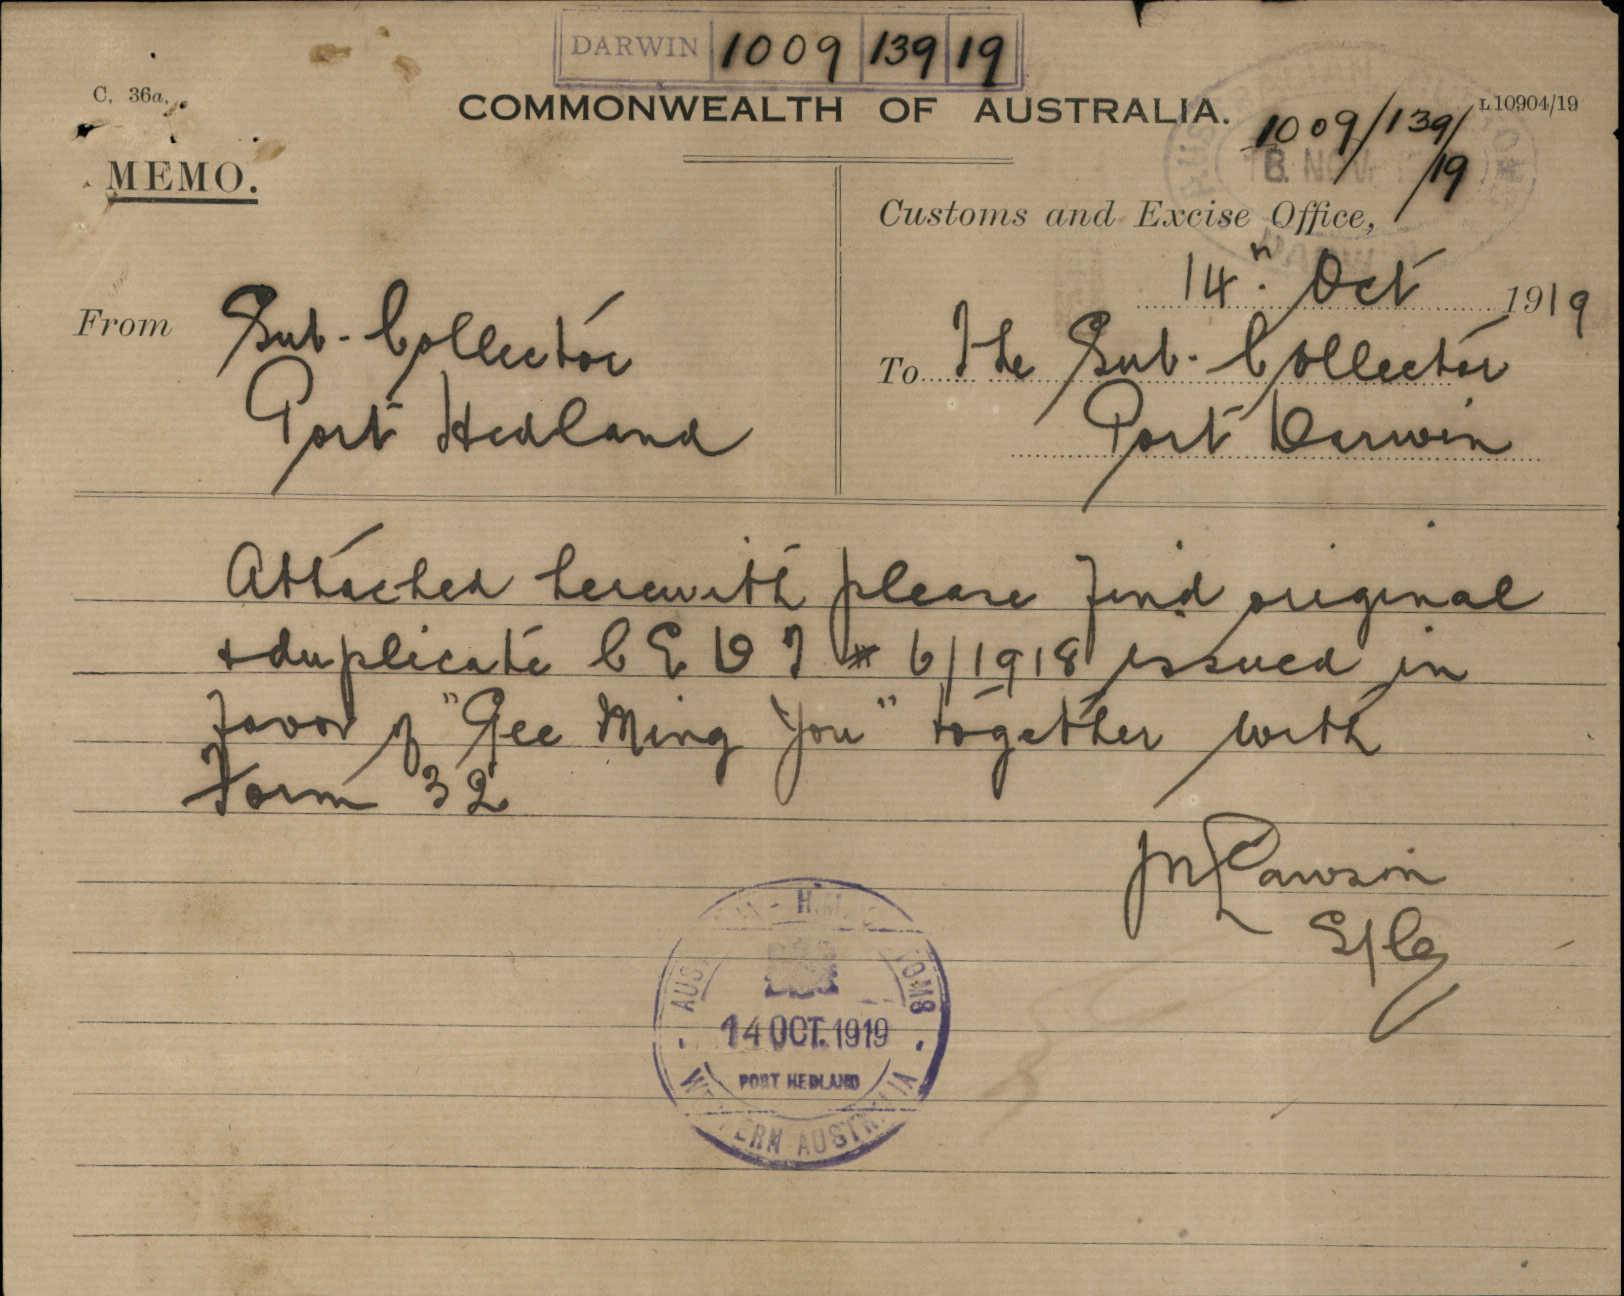 DARWIN 1009 139 19
C. 36a.
COMMONWEALTH OF AUSTRALIA.
L10904/19
1009/139/
19
MEMO.
Customs and Excise Office,
14th. Oct 1919
From Sub-Collector
Port Hedland
To The Sub-Collector
Port Darwin
Attached herewith please find original
& duplicate C E D T # 6/1918 issued in
favor of "Gee Ming You" together with
Form 32
14 OCT. 1919
PORT HEDLAND
WESTERN AUSTRALIA